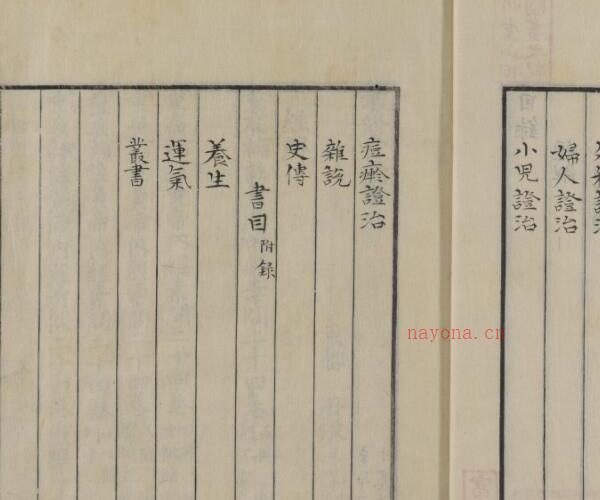 婦人證治
小兒證治
痘疹證治
雜說
史傳
書目附錄
養生
運氣
叢書
nayona.cn